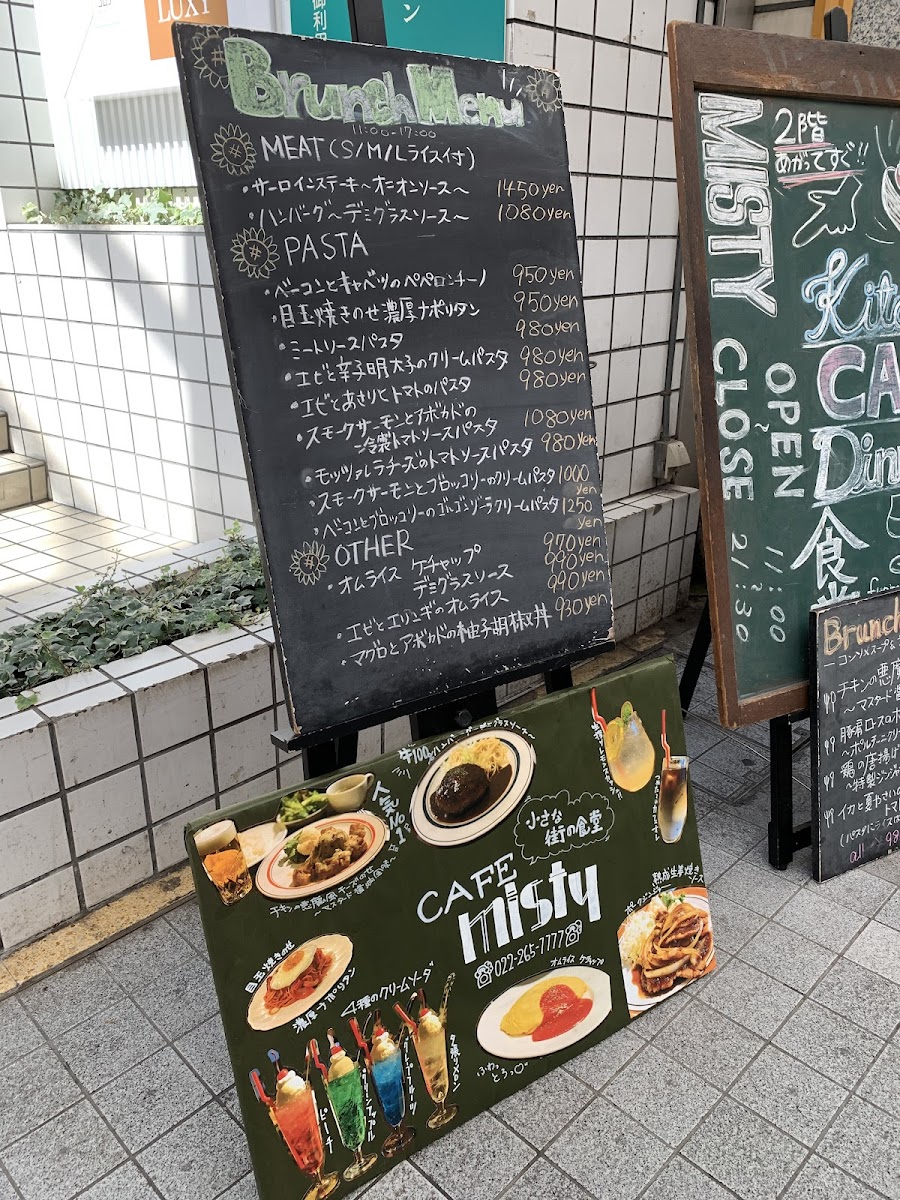 LUXY
御利用
ン
Brunch Menu
11:00-17:00
MEAT (S/M/Lライス付)
・サーロインステーキ〜オニオンソース〜 1450yen
・ハンバーグ〜デミグラスソース〜 1080yen
PASTA
・ベーコンとキャベツのペペロンチーノ 950yen
・目玉焼きのせ濃厚ナポリタン 950yen
・ミートソースパスタ 980yen
・エビと辛子明太子のクリームパスタ 980yen
・エビとあさりとトマトのパスタ 980yen
・スモークサーモンとアボカドの
冷製トマトソースパスタ 1080yen
・モッツァレラチーズのトマトソースパスタ 980yen
・スモークサーモンとブロッコリーのクリームパスタ 1000yen
・ベーコンとブロッコリーのゴルゴンゾーラクリームパスタ 1250yen
OTHER
・オムライス ケチャップ 970yen
デミグラスソース 990yen
・エビとエリンギのオムライス 990yen
・マグロとアボカドの柚子胡椒丼 930yen
MISTY
2階
あがってすぐ!!
Kit
CA
Din
食
OPEN
11:00
〜
CLOSE
21:30
Brunch
チキンの悪魔
〜マスタード
豚肩ロースの
鶏の唐揚げ
〜特製ジンジャ
イカと夏やさいの
トマ
all
人気No.1
チキンの悪魔風チーズのせ
〜マスタード醤油風味〜
小さな
街の食堂
CAFE
misty
022-265-7777
目玉焼きのせ
濃厚ナポリタン
4種のクリームソーダ
ピーチ
グリーンアップル
ブルーグレープフルーツ
夕張メロン
オムライス ケチャップ
ふわっ
とろっ
熟成生姜焼き
ポークジンジャーソース